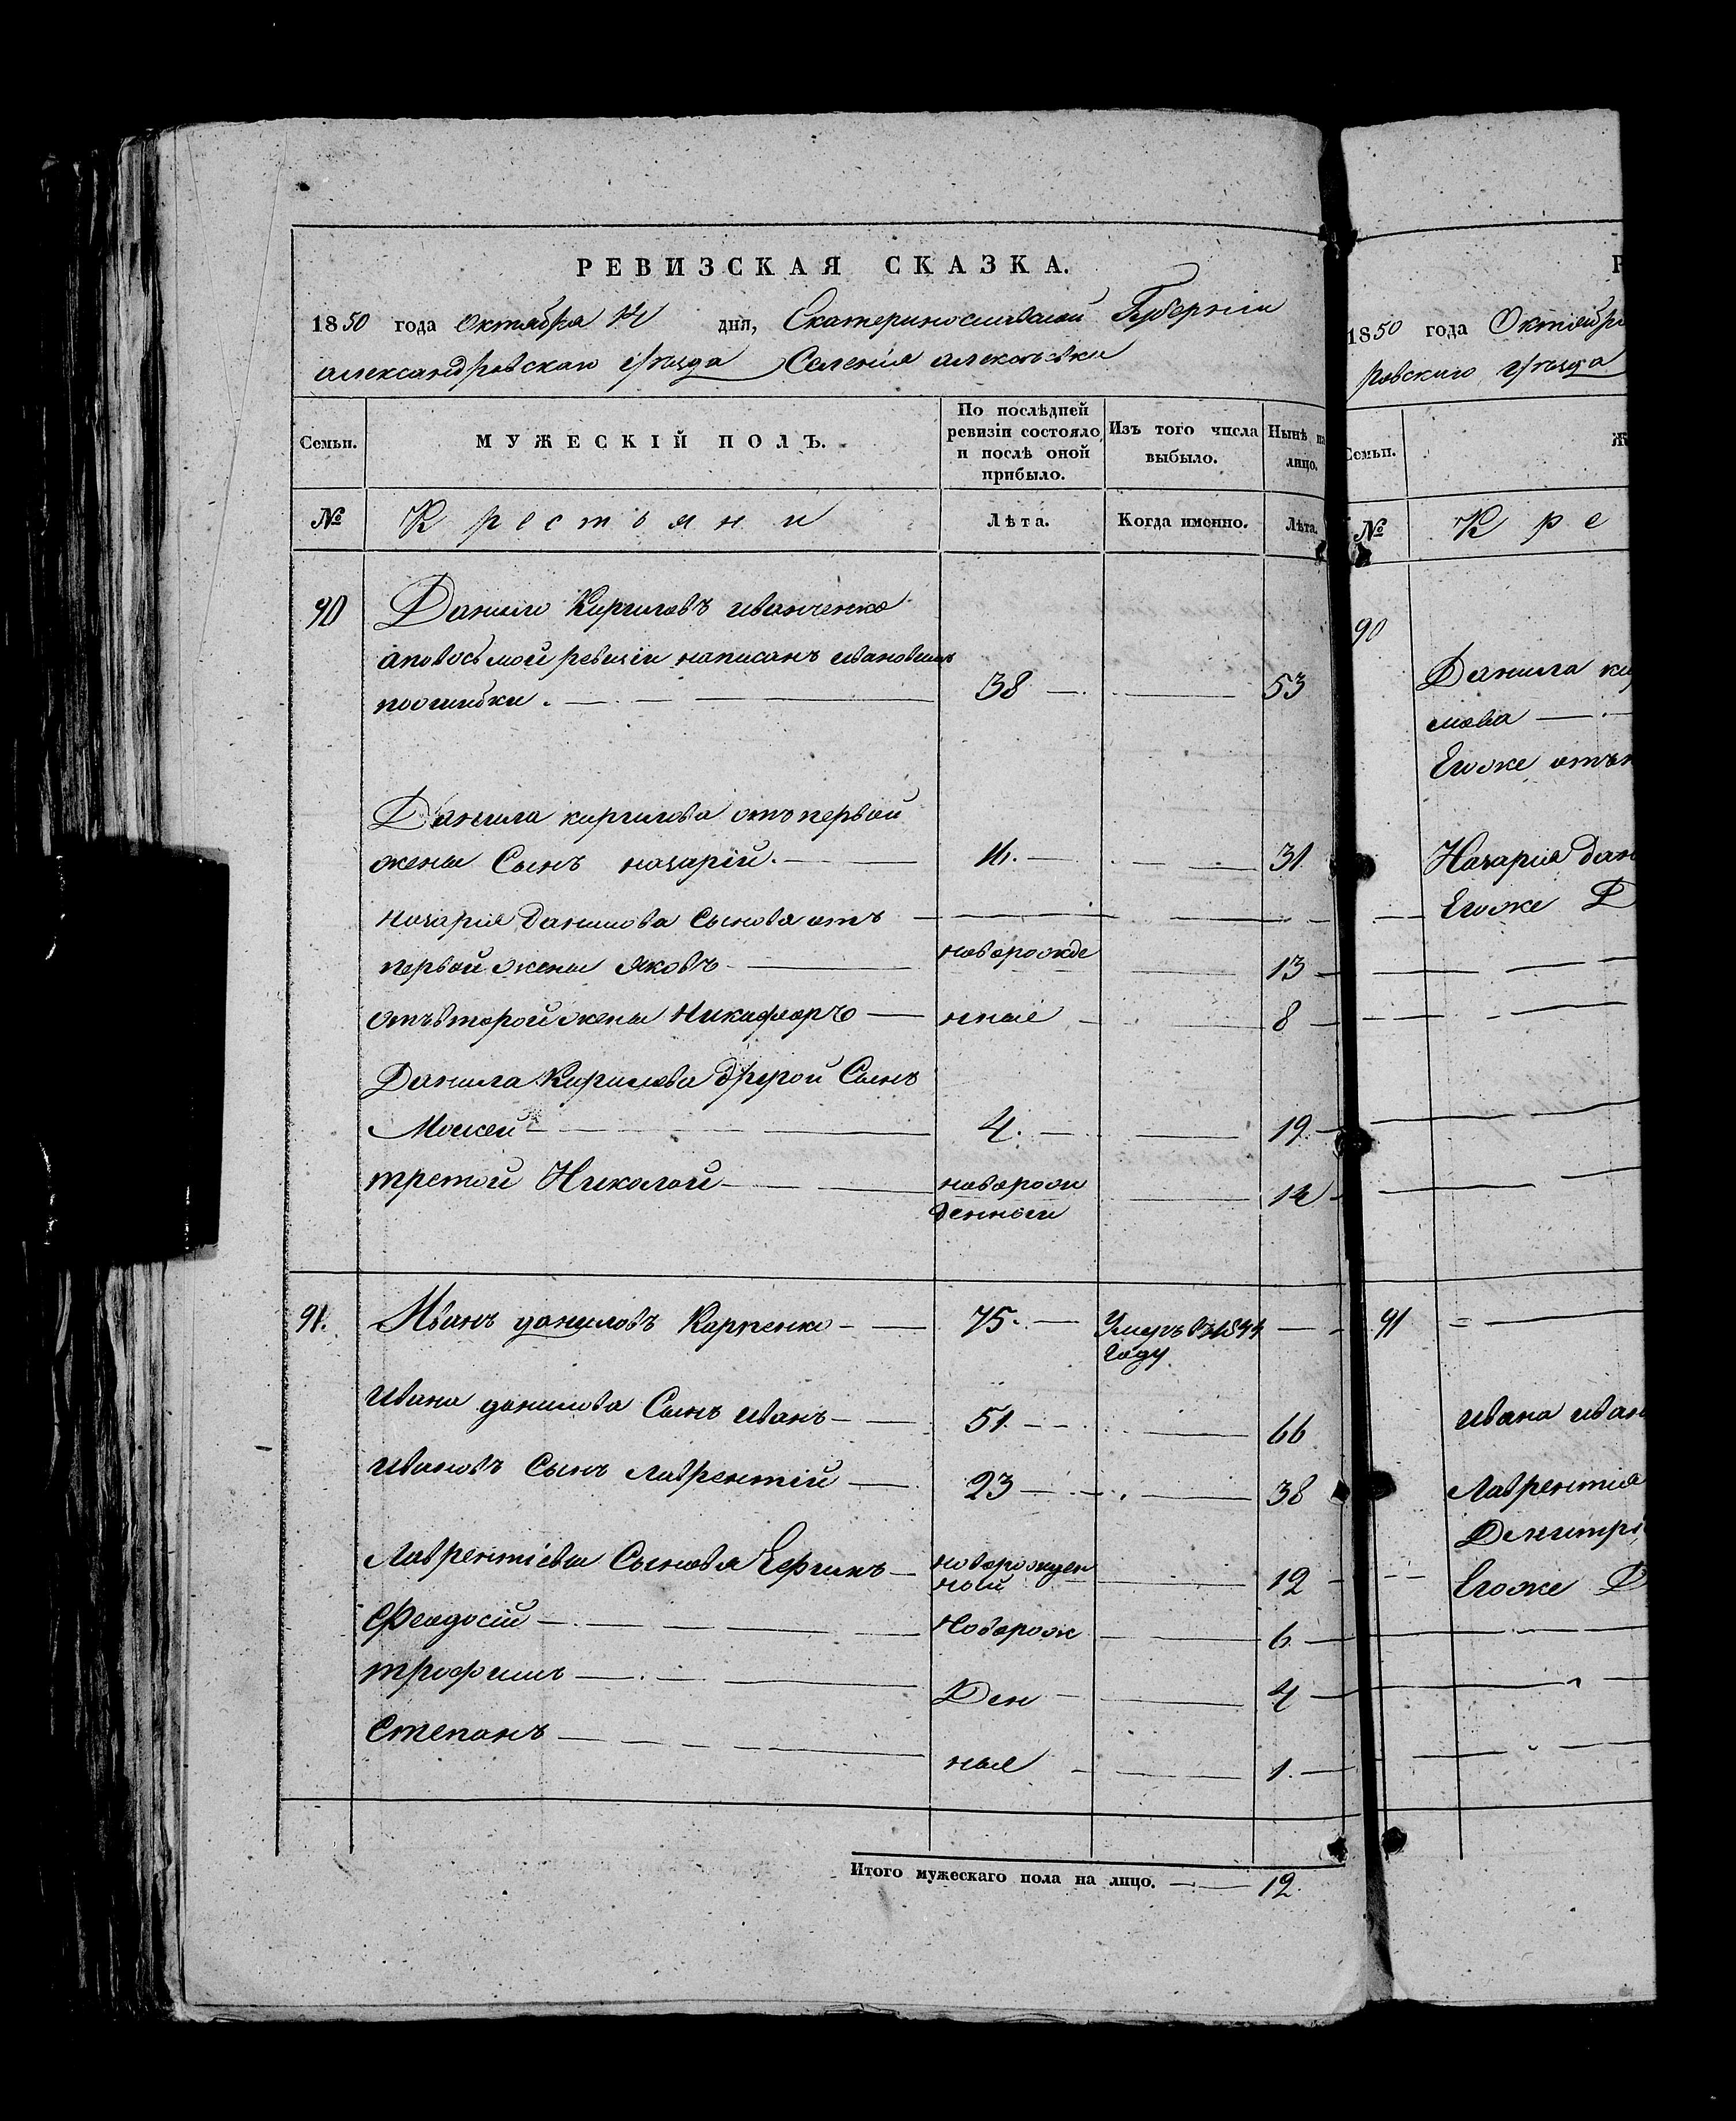 РЕВИЗСКАЯ СКАЗКА.
1850 года Октября 14 дня, Екатеринославской Губерніи
александровскаго уѣзда Селенія алексѣевки
Семьи.
МУЖЕСКІЙ ПОЛЪ.
По послѣдней ревизіи состояло и послѣ оной прибыло.
Изъ того числа выбыло.
Нынѣ на лицо.
№
Крестьяни
Лѣта.
Когда именно.
Лѣта.
90 Данило Кириловъ иванченко
аповосьмой ревизіи написанъ ивановымъ
поошибки. 38 53
Данила кирилова отъ первой
жены Сынъ назарій. 16. 31
назарія Данилова Сыновя отъ
первой жены яковъ новорожде 13
отъ второй жены Никифоръ нные 8
Данила Кирилова другой Сынъ
Моисей 4. 19
третой Николай новорож 14
денной
91. Иванъ даниловъ Карпенко 75. Умеръ въ 1844
году
ивана данилова Сынъ иванъ 51. 66
ивановъ Сынъ лаврентій 23 38
Лаврентіевы Сыновя Ефимъ новорожден 12
ной
Феодосій Новорож 6
трофимъ Ден 4
Степанъ ные 1.
Итого мужескаго пола на лицо. 12.
1850 года Октября
ровскаго уѣзда
Семьи.
Ж
№
К р е
90
Данила ки
лова
Егоже отъ
Назарія дан
Егоже Д
91
ивана иван
Лаврентія
Дмитрі
Егоже Д